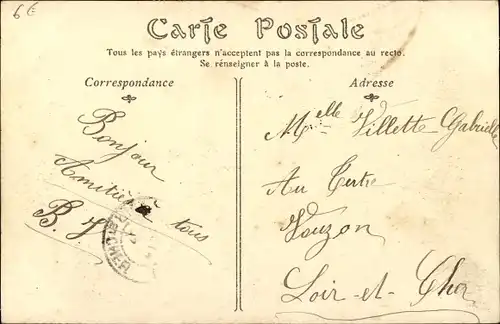 6€
Carte Postale
Tous les pays étrangers n'acceptent pas la correspondance au recto.
Se rénseigner à la poste.
Correspondance
Bonjour
Amitiés à tous
B. J.
Adresse
Melle Villette Gabrielle
Au Tertre
Vouzon
Loir-et-Cher
ET-CHER